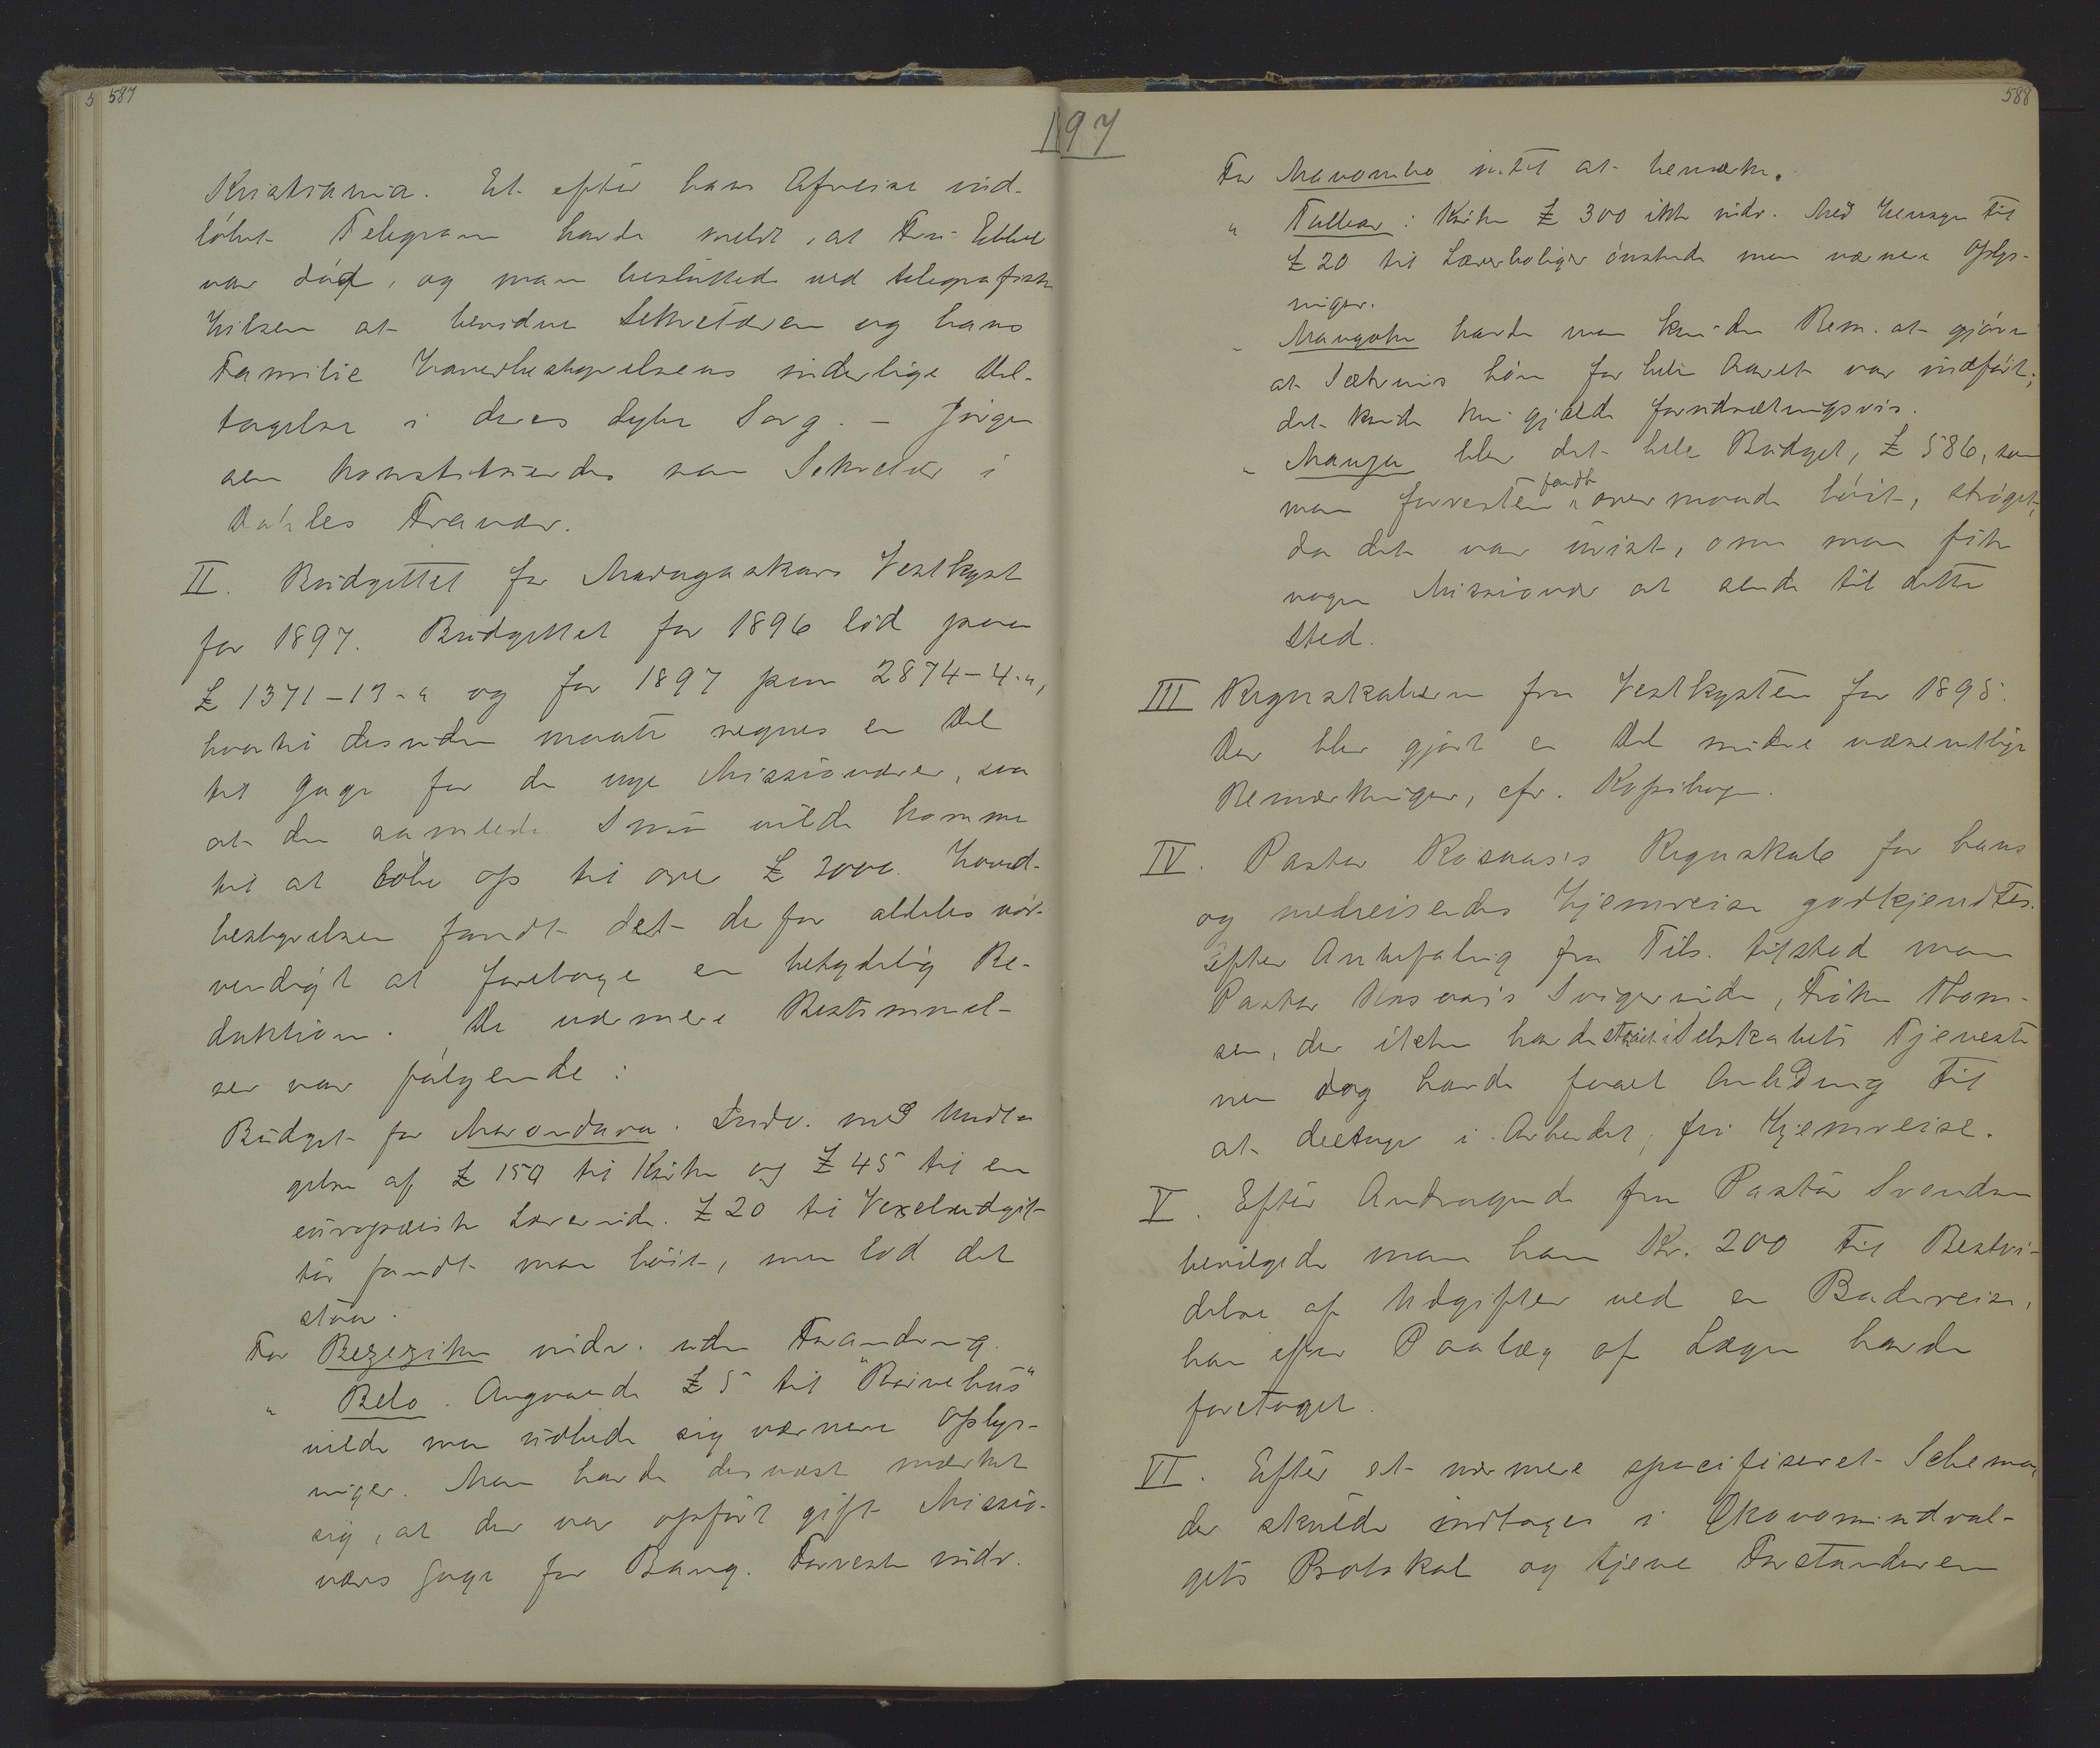 5 587
197
Kristiania. Et efter hans Afreise ind-
løbet Telegram havde meldt, at Fru
var død, og man besluttede ved telegrafisk
Hilsen at bevidne Sekretæren og hans
Familie Hovedbestyrelsens inderlige Del-
tagelse i deres dybe Sorg. – Jørgen-
sen konstitueredes som Sekretær i
Dahles Fravær.
II. Budgettet for Madagaskars Vestkyst
for 1897. Budgettet for 1896 lød paa
£ 1371-13-" og for 1897 paa 2874-4-",
hvortil desuden maatte regnes en Del
til Gage for de nye Missionærer, saa
at den samlede Sum vilde komme
til at løbe op til over £ 3000. Hoved-
bestyrelsen fandt det derfor aldeles nød-
vendigt at foretage en betydelig Re-
duktion. De nærmere Bestemmel-
ser var følgende:
Budget for Morondava. Indv. med Undta-
gelse af £ 150 til Kirke og £ 45 til en
europæisk Lærerinde. £ 20 til Vexeludgif-
ter fandt man høit, men lod det
staa.
For Bezezike indv. uden Forandring.
" Belo. Angaaende £ 5 til "Reisehus"
vilde man udbede sig nærmere Oplys-
niger. Man havde desuast mærket
sig, at der var opført gift Missio-
nærs Gage for Bang. Forresten indv.
588
For Manombo intet at bemærke.
" Tullear: Kirke £ 300 ikke indv. Med Hensyn til
£ 20 til Lærerboliger ønskede man nærmere Oplys-
niger.
" Mangoke havde man kun den Bem. at gjøre
at Sætrevis Løn for hele Aaret var indført;
det kunde kun gjælde forudsætningsvis.
" blev det hele Budget, £ 586, som
man forresten fandt overmaade høit, strøget,
da det var uvist, om man fik
nogen Missionær at sende til dette
Sted.
III Regnskaberne fra Vestkysten for 1895.
Der blev gjort en Del mindre væsentlige
Bemærkninger, cfr. Kopibogen.
IV. Pastor Rosaas's Regnskab for hans
og medreisendes Hjemreise godkjendtes.
Efter Anbefaling fra Tils. tilstod man
Pastor Rosaas's Svigerinde, Frøken Thom-
sen, der ikke havde staaet i Selskabets Tjeneste
men dog havde faaet Anledning til
at deeltage i Arbeidet, fri Hjemreise.
V. Efter Andragende fra Pastor Svendsen
bevilgede man ham Kr. 200 til Bestri-
delse af Udgifter ved en Badereise,
han efter Paalæg af Lægen havde
foretaget.
VI. Efter et nærmere specifiseret Schema,
der skulde indtages i Økonomiudval-
gets Protokol og tjene Forstanderen